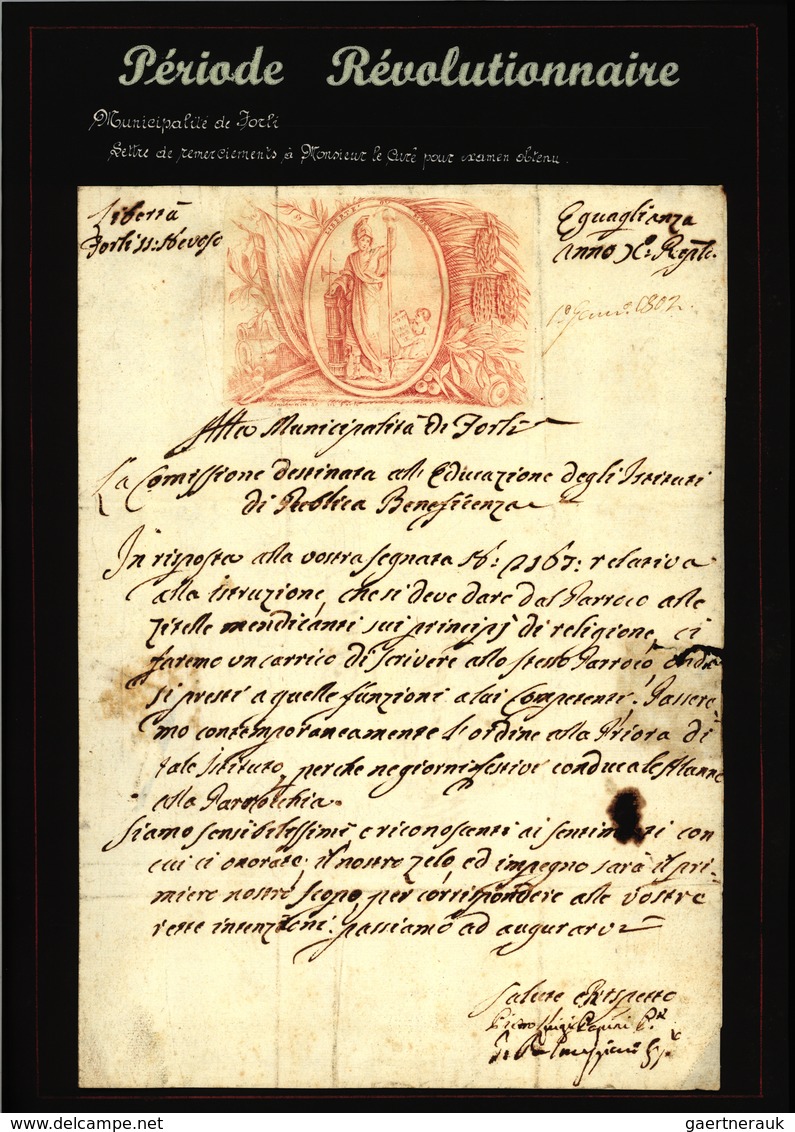 Période Révolutionnaire
Municipalité de Forli
Lettre de remerciements à Monsieur le Curé pour examen obtenu.
Libertà
Eguaglianza
Forli 11: Nevoso
Anno X.º Repbl.
1º Genn.º 1802.
Alla Municipalità di Forlì
La Comissione destinata all' Educazione degli Istituti
di Publica Beneficienza
In risposta alla vostra segnata N: 2167: relativa
alla istruzione, che si deve dare dal Parroco alle
Zitelle mendicanti sui principj di religione, ci
faremo un carrico di scrivere allo stesso Parroco, onde
si presti a quelle funzioni a lui competenti. Passere
mo contemporaneamente l'ordine alla Priora di
tale Istituto, perche ne giorni festivi conduca le Alunne
alla Parrocchia.
Siamo sensibilissimi, e riconoscenti ai sentimenti con
cui ci onorate; il nostro zelo, ed impegno sarà il pri-
miero nostro scopo, per corrispondere alle vostre
rette intenzioni: passiamo ad augurarvi
Salute e Rispetto
Pietro Luigi
gaertnerauk
delcampe.net